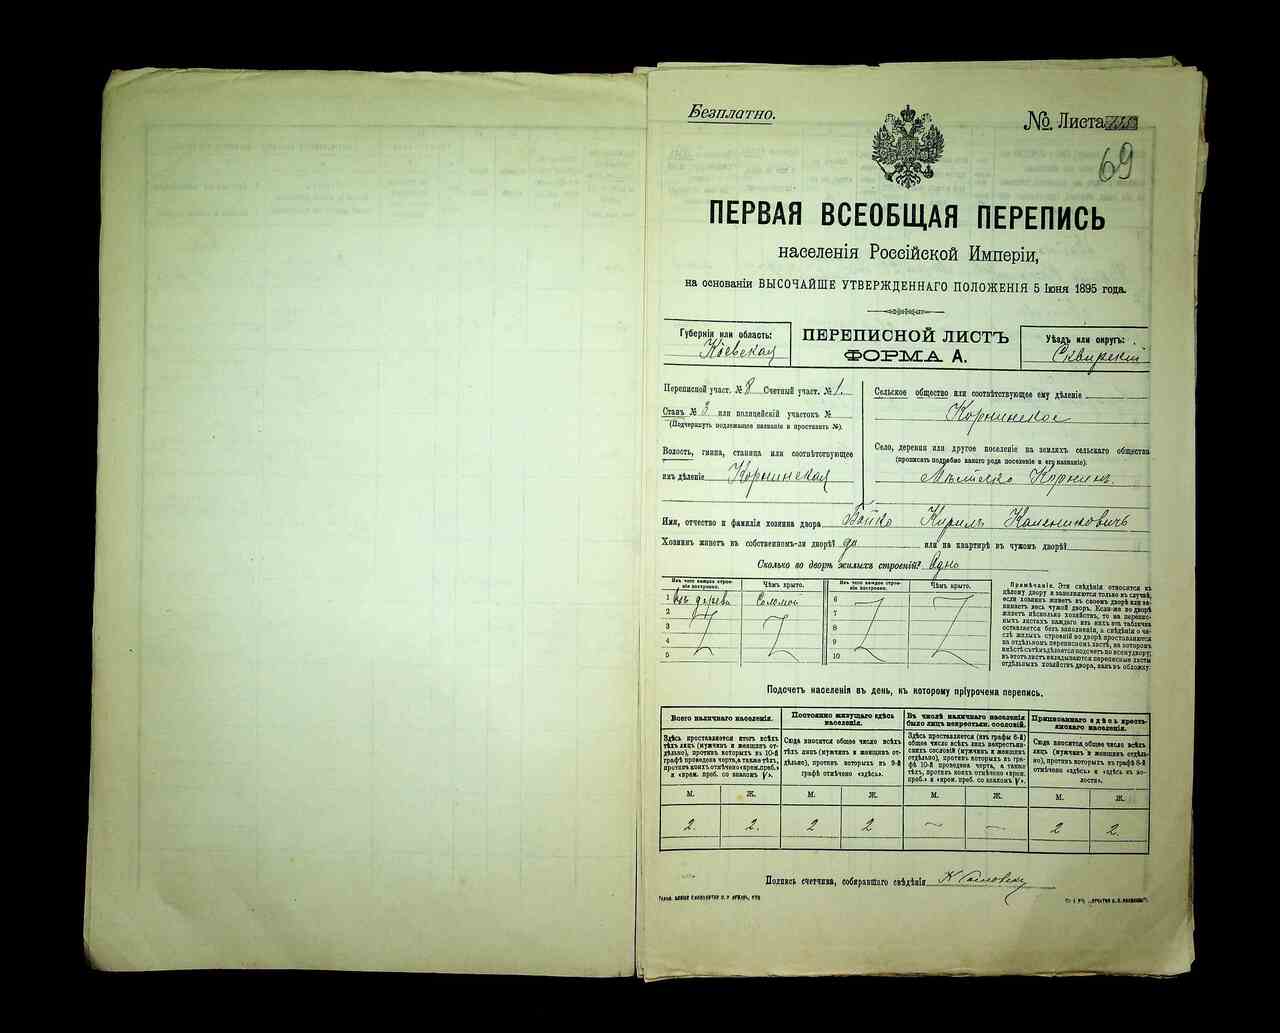 Безплатно.
№ Листа
69
ПЕРВАЯ ВСЕОБЩАЯ ПЕРЕПИСЬ
населенія Россійской Имперіи,
на основаніи ВЫСОЧАЙШЕ УТВЕРЖДЕННАГО ПОЛОЖЕНІЯ 5 Іюня 1895 года.
Губернія или область:
Кіевская
ПЕРЕПИСНОЙ ЛИСТЪ
ФОРМА А.
Уѣздъ или округъ:
Сквирскій
Переписной участ. № 8 Счетный участ. № 1.
Станъ № 3 или полицейскій участокъ №
(Подчеркнуть подлежащее названіе и проставить №).
Волость, гмина, станица или соотвѣтствующее
имъ дѣленіе Корнинская
Сельское общество или соотвѣтствующее ему дѣленіе
Корнинское
Село, деревня или другое поселеніе на земляхъ сельскаго общества
(прописать подробно какого рода поселеніе и его названіе):
Мѣстечко Корнинъ.
Имя, отчество и фамилія хозяина двора Бойко Кирилъ Калениковичъ
Хозяинъ живетъ въ собственномъ-ли дворѣ? да или на квартирѣ въ чужомъ дворѣ?
Сколько во дворѣ жилыхъ строеній? Одно
Изъ чего каждое строеніе построено. Чѣмъ крыто. Изъ чего каждое строеніе построено. Чѣмъ крыто.
1 изъ дерева Соломой 6
2 7
3 8
4 9
5 10
Примѣчаніе. Эти свѣдѣнія относятся къ
цѣлому двору и заполняются только въ случаѣ,
если хозяинъ живетъ въ своемъ дворѣ или за-
нимаетъ весь чужой дворъ. Если-же во дворѣ
живетъ нѣсколько хозяйствъ, то на перепис-
ныхъ листахъ каждаго изъ нихъ эта табличка
оставляется безъ заполненія, а свѣдѣнія о чи-
слѣ жилыхъ строеній во дворѣ проставляются
на отдѣльномъ переписномъ листѣ, на которомъ
вмѣстѣ съ тѣмъ дѣлается подсчетъ по всему двору;
въ этотъ листъ вкладываются переписные листы
отдѣльныхъ хозяйствъ двора, какъ въ обложку.
Подсчетъ населенія въ день, къ которому пріурочена перепись.
Всего наличнаго населенія.
Здѣсь проставляется итогъ всѣхъ
тѣхъ лицъ (мужчинъ и женщинъ от-
дѣльно), противъ которыхъ въ 10-й
графѣ проведена черта, а также тѣхъ,
противъ коихъ отмѣчено «врем. преб.»
и «врем. преб. со знакомъ V».
Постоянно живущаго здѣсь
населенія.
Сюда вносится общее число всѣхъ
тѣхъ лицъ (мужчинъ и женщинъ от-
дѣльно), противъ которыхъ въ 9-й
графѣ отмѣчено «здѣсь».
Въ числѣ наличнаго населенія
было лицъ некрестьян. сословій.
Здѣсь проставляется (изъ графы 6-й)
общее число всѣхъ лицъ некрестьян-
скихъ сословій (мужчинъ и женщинъ
отдѣльно), противъ которыхъ въ гра-
фѣ 10-й проведена черта, а также
тѣхъ, противъ коихъ отмѣчено «врем.
преб.» и «врем. преб. со знакомъ V».
Приписаннаго здѣсь кресть-
янскаго населенія.
Сюда вносится общее число всѣхъ
лицъ (мужчинъ и женщинъ отдѣль-
но), противъ которыхъ въ графѣ 8-й
отмѣчено «здѣсь» и «здѣсь въ во-
лости».
М. Ж. М. Ж. М. Ж. М. Ж.
2. 2. 2 2 — — 2 2.
Подпись счетчика, собиравшаго свѣдѣнія